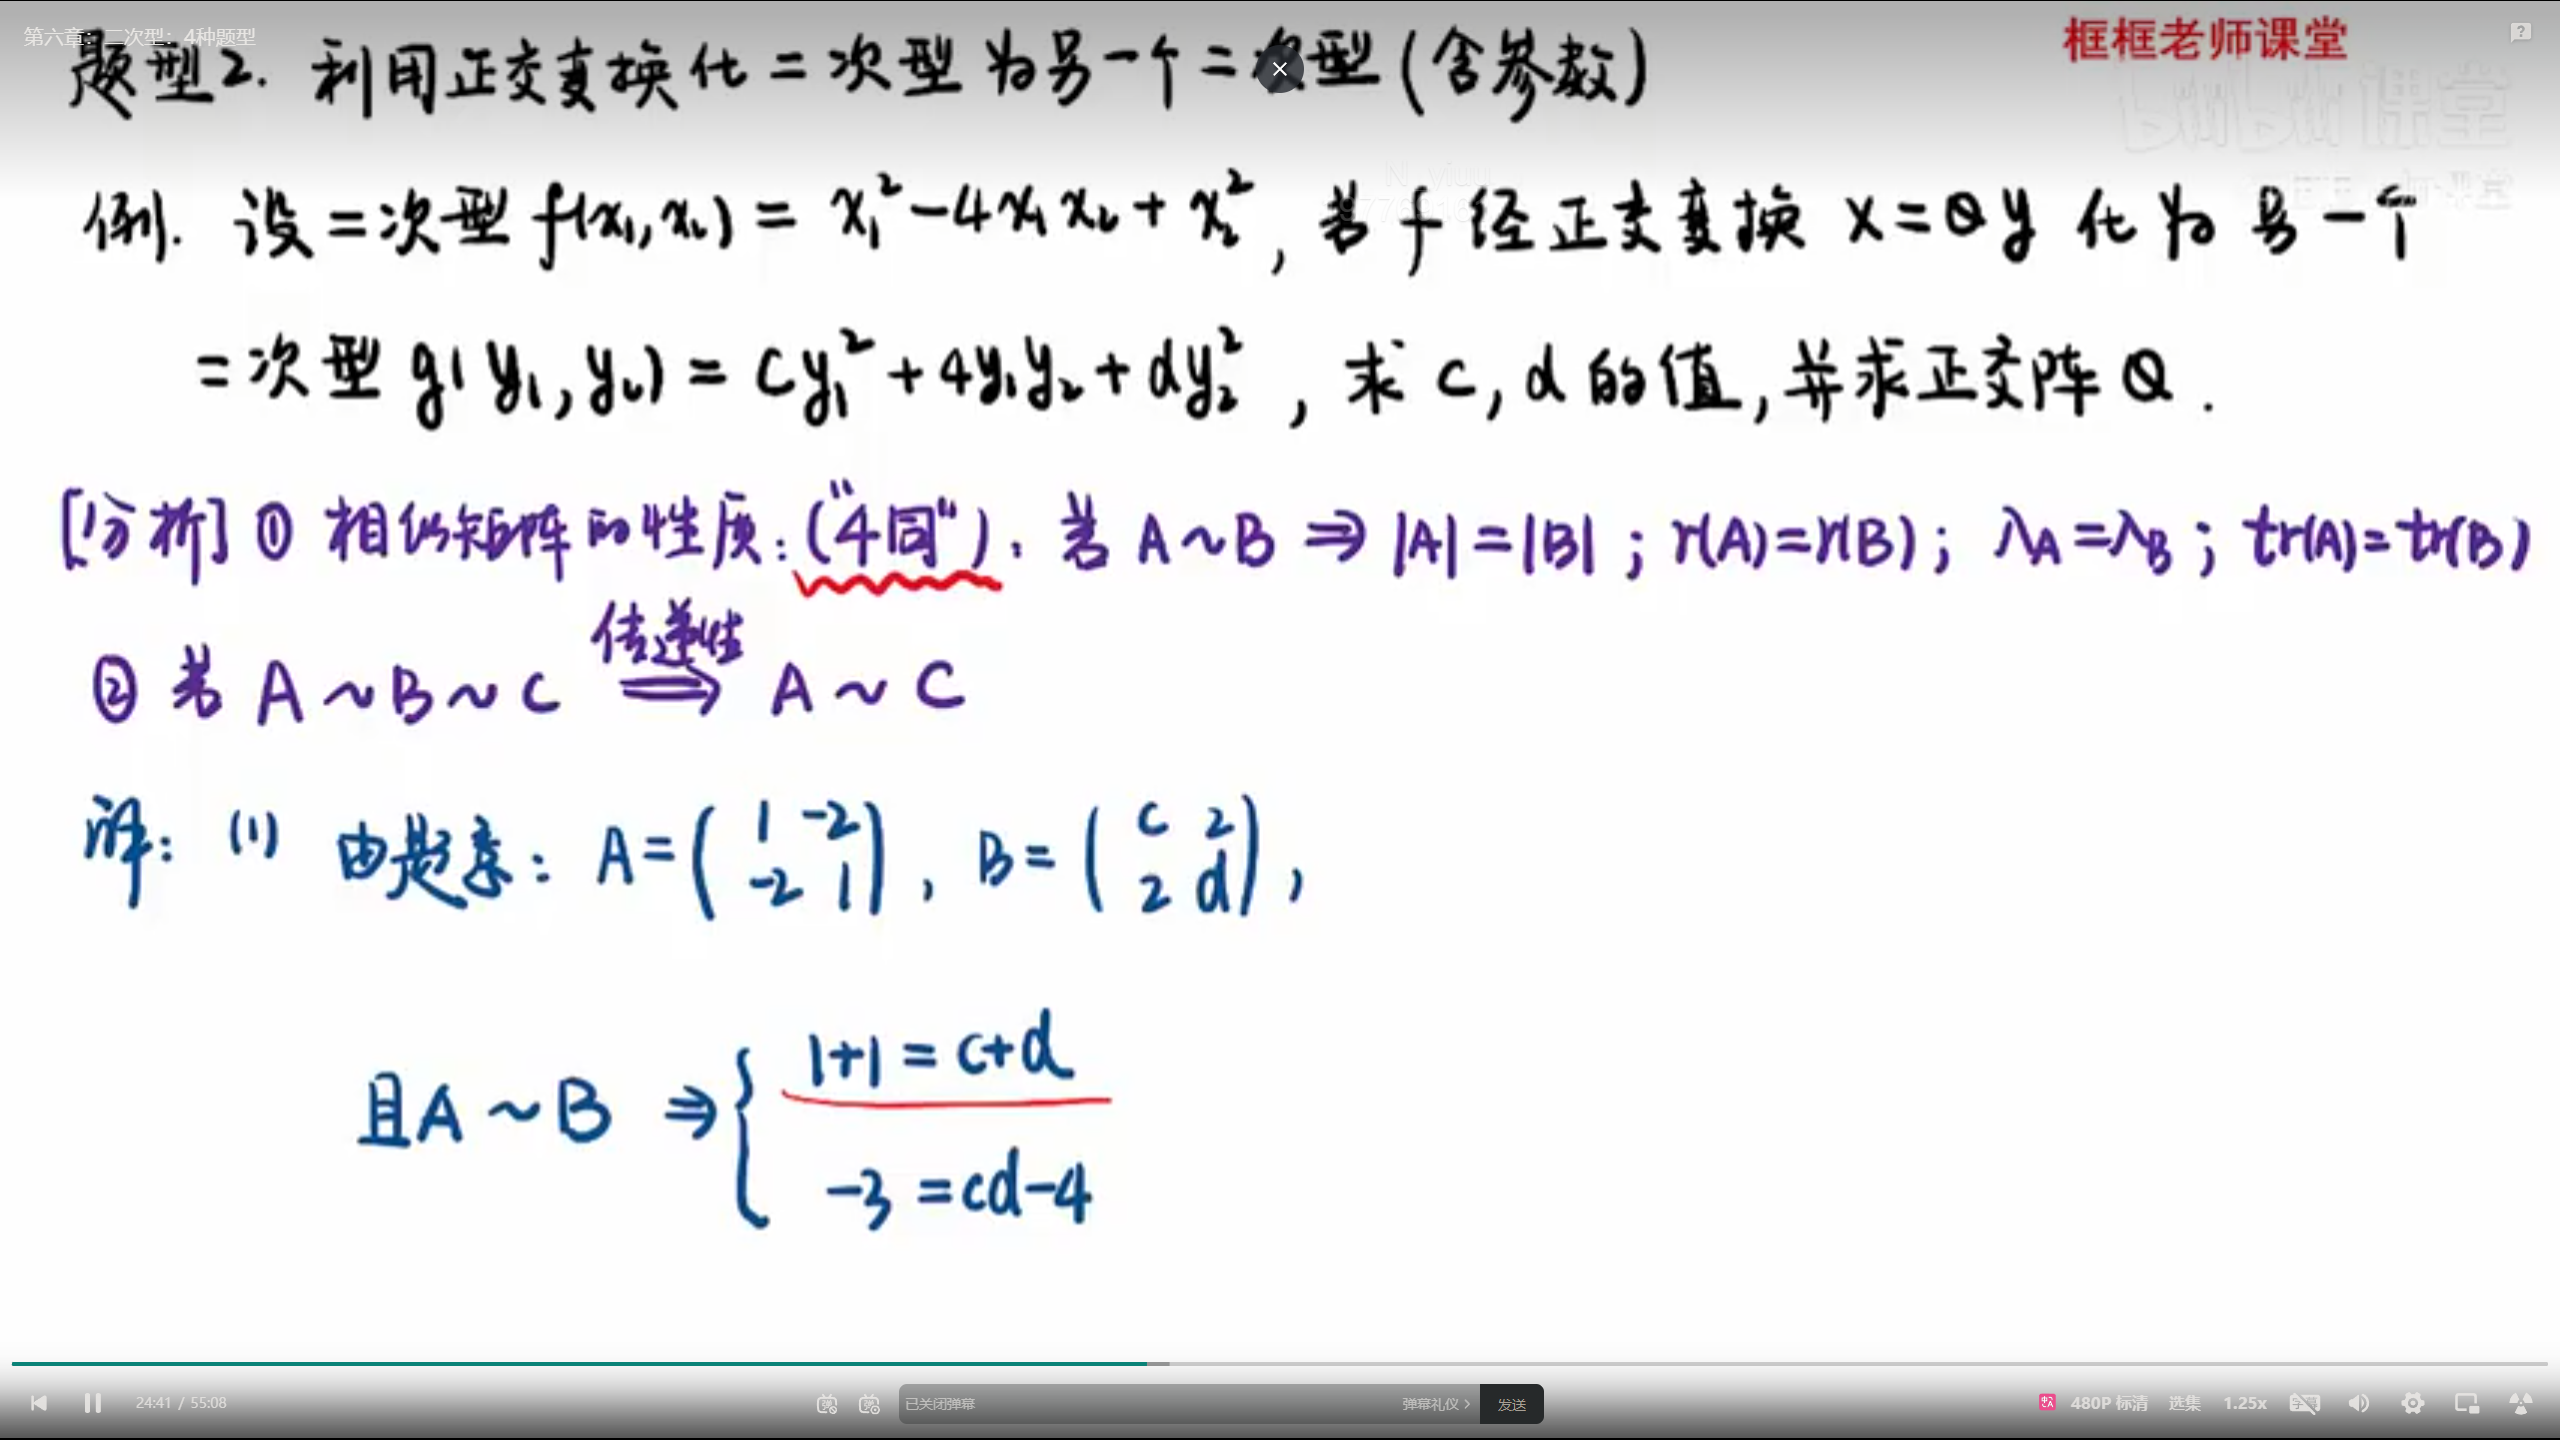 第六章：二次型：4种题型
框框老师课堂
题型2. 利用正交变换化二次型为另一个二次型(含参数)
例. 设二次型 f(x₁,x₂) = x₁²-4x₁x₂+x₂², 若 f 经正交变换 x=Qy 化为另一个
二次型 g(y₁,y₂) = cy₁²+4y₁y₂+dy₂², 求 c,d 的值,并求正交阵 Q.
[分析] ① 相似矩阵的性质:("4同"). 若 A~B ⇒ |A|=|B|; r(A)=r(B); λA=λB; tr(A)=tr(B)
传递性
② 若 A~B~C ⟹ A~C
解: (1) 由题意: A=(1 -2
-2 1), B=(c 2
2 d),
且A~B ⇒ { 1+1=c+d
-3=cd-4
24:41 / 55:08
已关闭弹幕 弹幕礼仪 > 发送
480P 标清 选集 1.25x